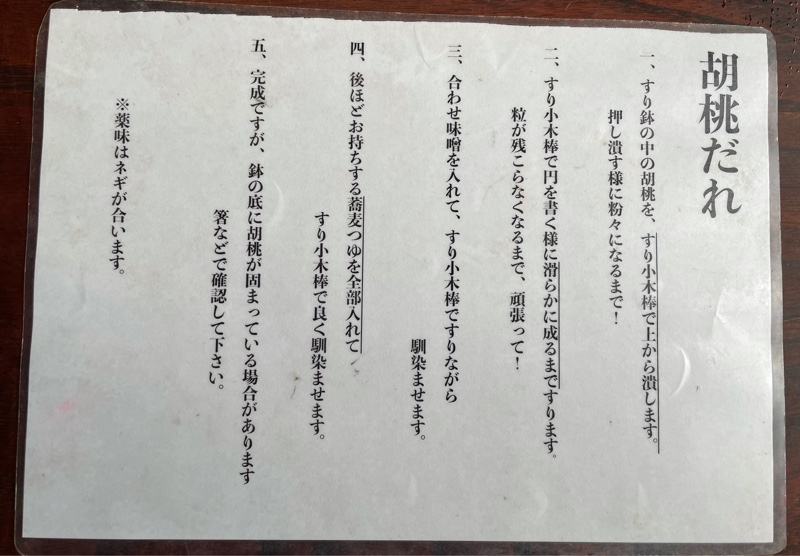 胡桃だれ
一、すり鉢の中の胡桃を、すり小木棒で上から潰します。
押し潰す様に粉々になるまで！
二、すり小木棒で円を書く様に滑らかに成るまですります。
粒が残こらなくなるまで、頑張って！
三、合わせ味噌を入れて、すり小木棒ですりながら
馴染ませます。
四、後ほどお持ちする蕎麦つゆを全部入れて
すり小木棒で良く馴染ませます。
五、完成ですが、鉢の底に胡桃が固まっている場合があります
箸などで確認して下さい。
※薬味はネギが合います。